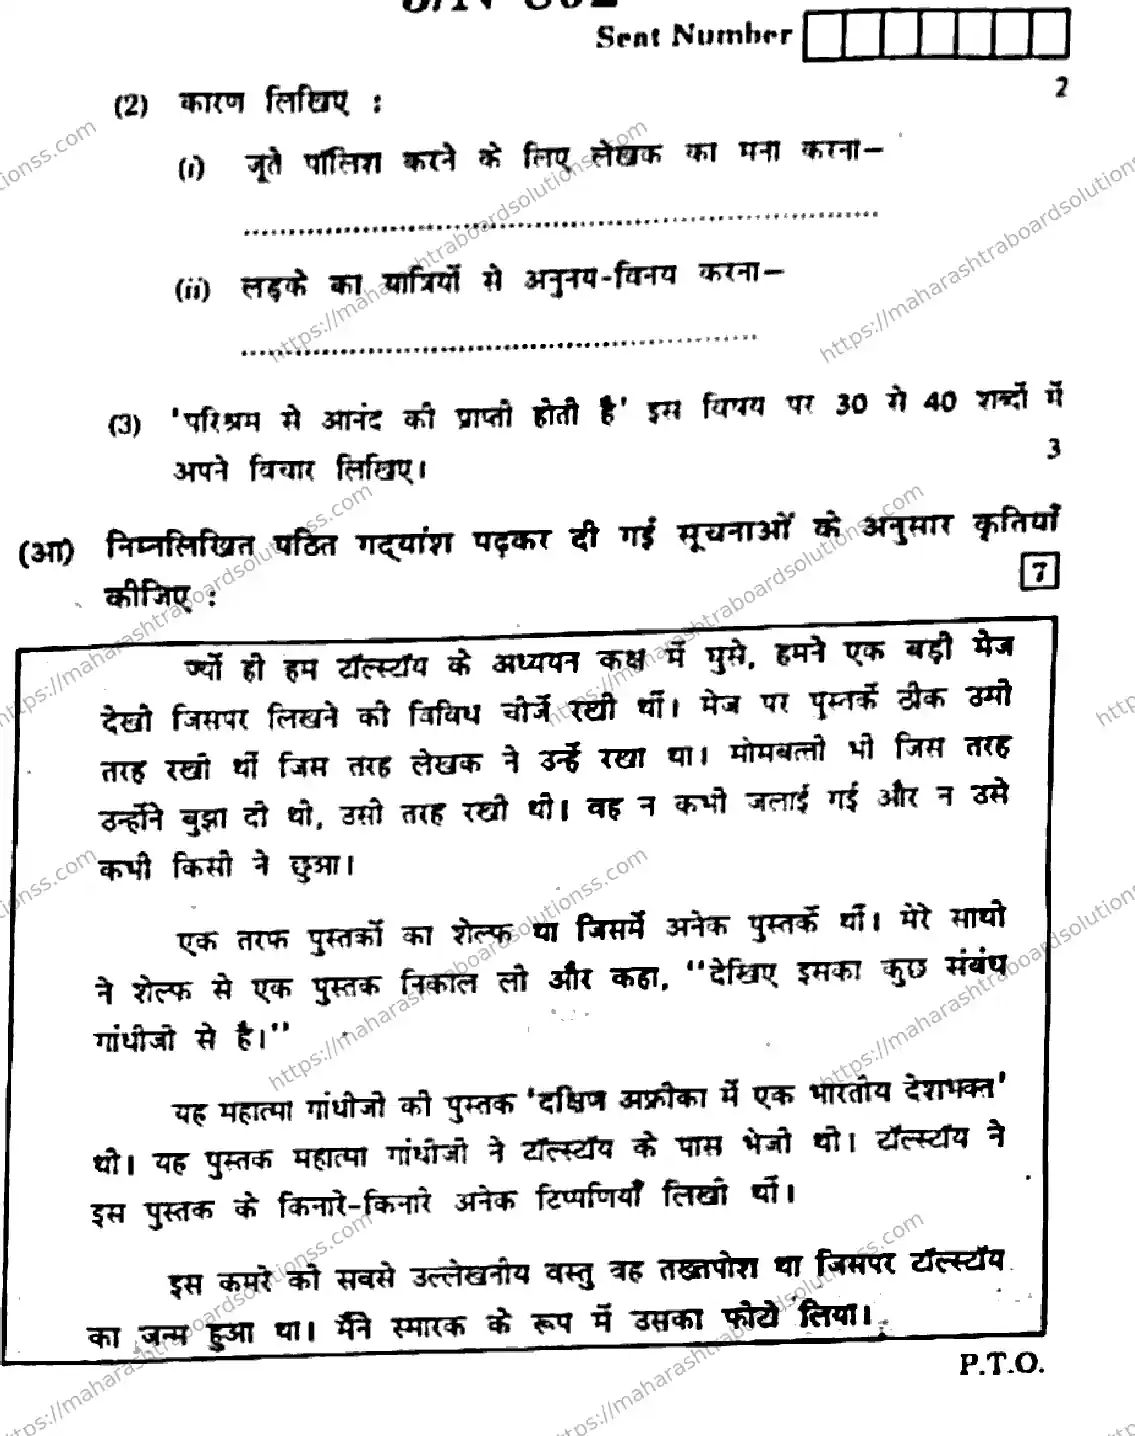 Seat Number
2
(2) कारण लिखिए :
(i) जूते पॉलिश करने के लिए लेखक का मना करना–
(ii) लड़के का यात्रियों से अनुनय-विनय करना–
(3) 'परिश्रम से आनंद की प्राप्ती होती है' इस विषय पर 30 से 40 शब्दों में
अपने विचार लिखिए।
3
(आ) निम्नलिखित पठित गद्यांश पढ़कर दी गई सूचनाओं के अनुसार कृतियाँ
कीजिए :
7
ज्यों ही हम टॉल्स्टॉय के अध्ययन कक्ष में घुसे, हमने एक बड़ी मेज
देखी जिसपर लिखने की विविध चीजें रखी थीं। मेज पर पुस्तकें ठीक उसी
तरह रखी थीं जिस तरह लेखक ने उन्हें रखा था। मोमबत्ती भी जिस तरह
उन्होंने बुझा दी थी, उसी तरह रखी थी। वह न कभी जलाई गई और न उसे
कभी किसी ने छुआ।
एक तरफ पुस्तकों का शेल्फ था जिसमें अनेक पुस्तकें थीं। मेरे साथी
ने शेल्फ से एक पुस्तक निकाल ली और कहा, "देखिए इसका कुछ संबंध
गांधीजी से है।"
यह महात्मा गांधीजी की पुस्तक 'दक्षिण अफ्रीका में एक भारतीय देशभक्त'
थी। यह पुस्तक महात्मा गांधीजी ने टॉल्स्टॉय के पास भेजी थी। टॉल्स्टॉय ने
इस पुस्तक के किनारे-किनारे अनेक टिप्पणियाँ लिखी थीं।
इस कमरे की सबसे उल्लेखनीय वस्तु वह तख्तपोश था जिसपर टॉल्स्टॉय
का जन्म हुआ था। मैंने स्मारक के रूप में उसका फोटो लिया।
P.T.O.
https://maharashtraboardsolutionss.com